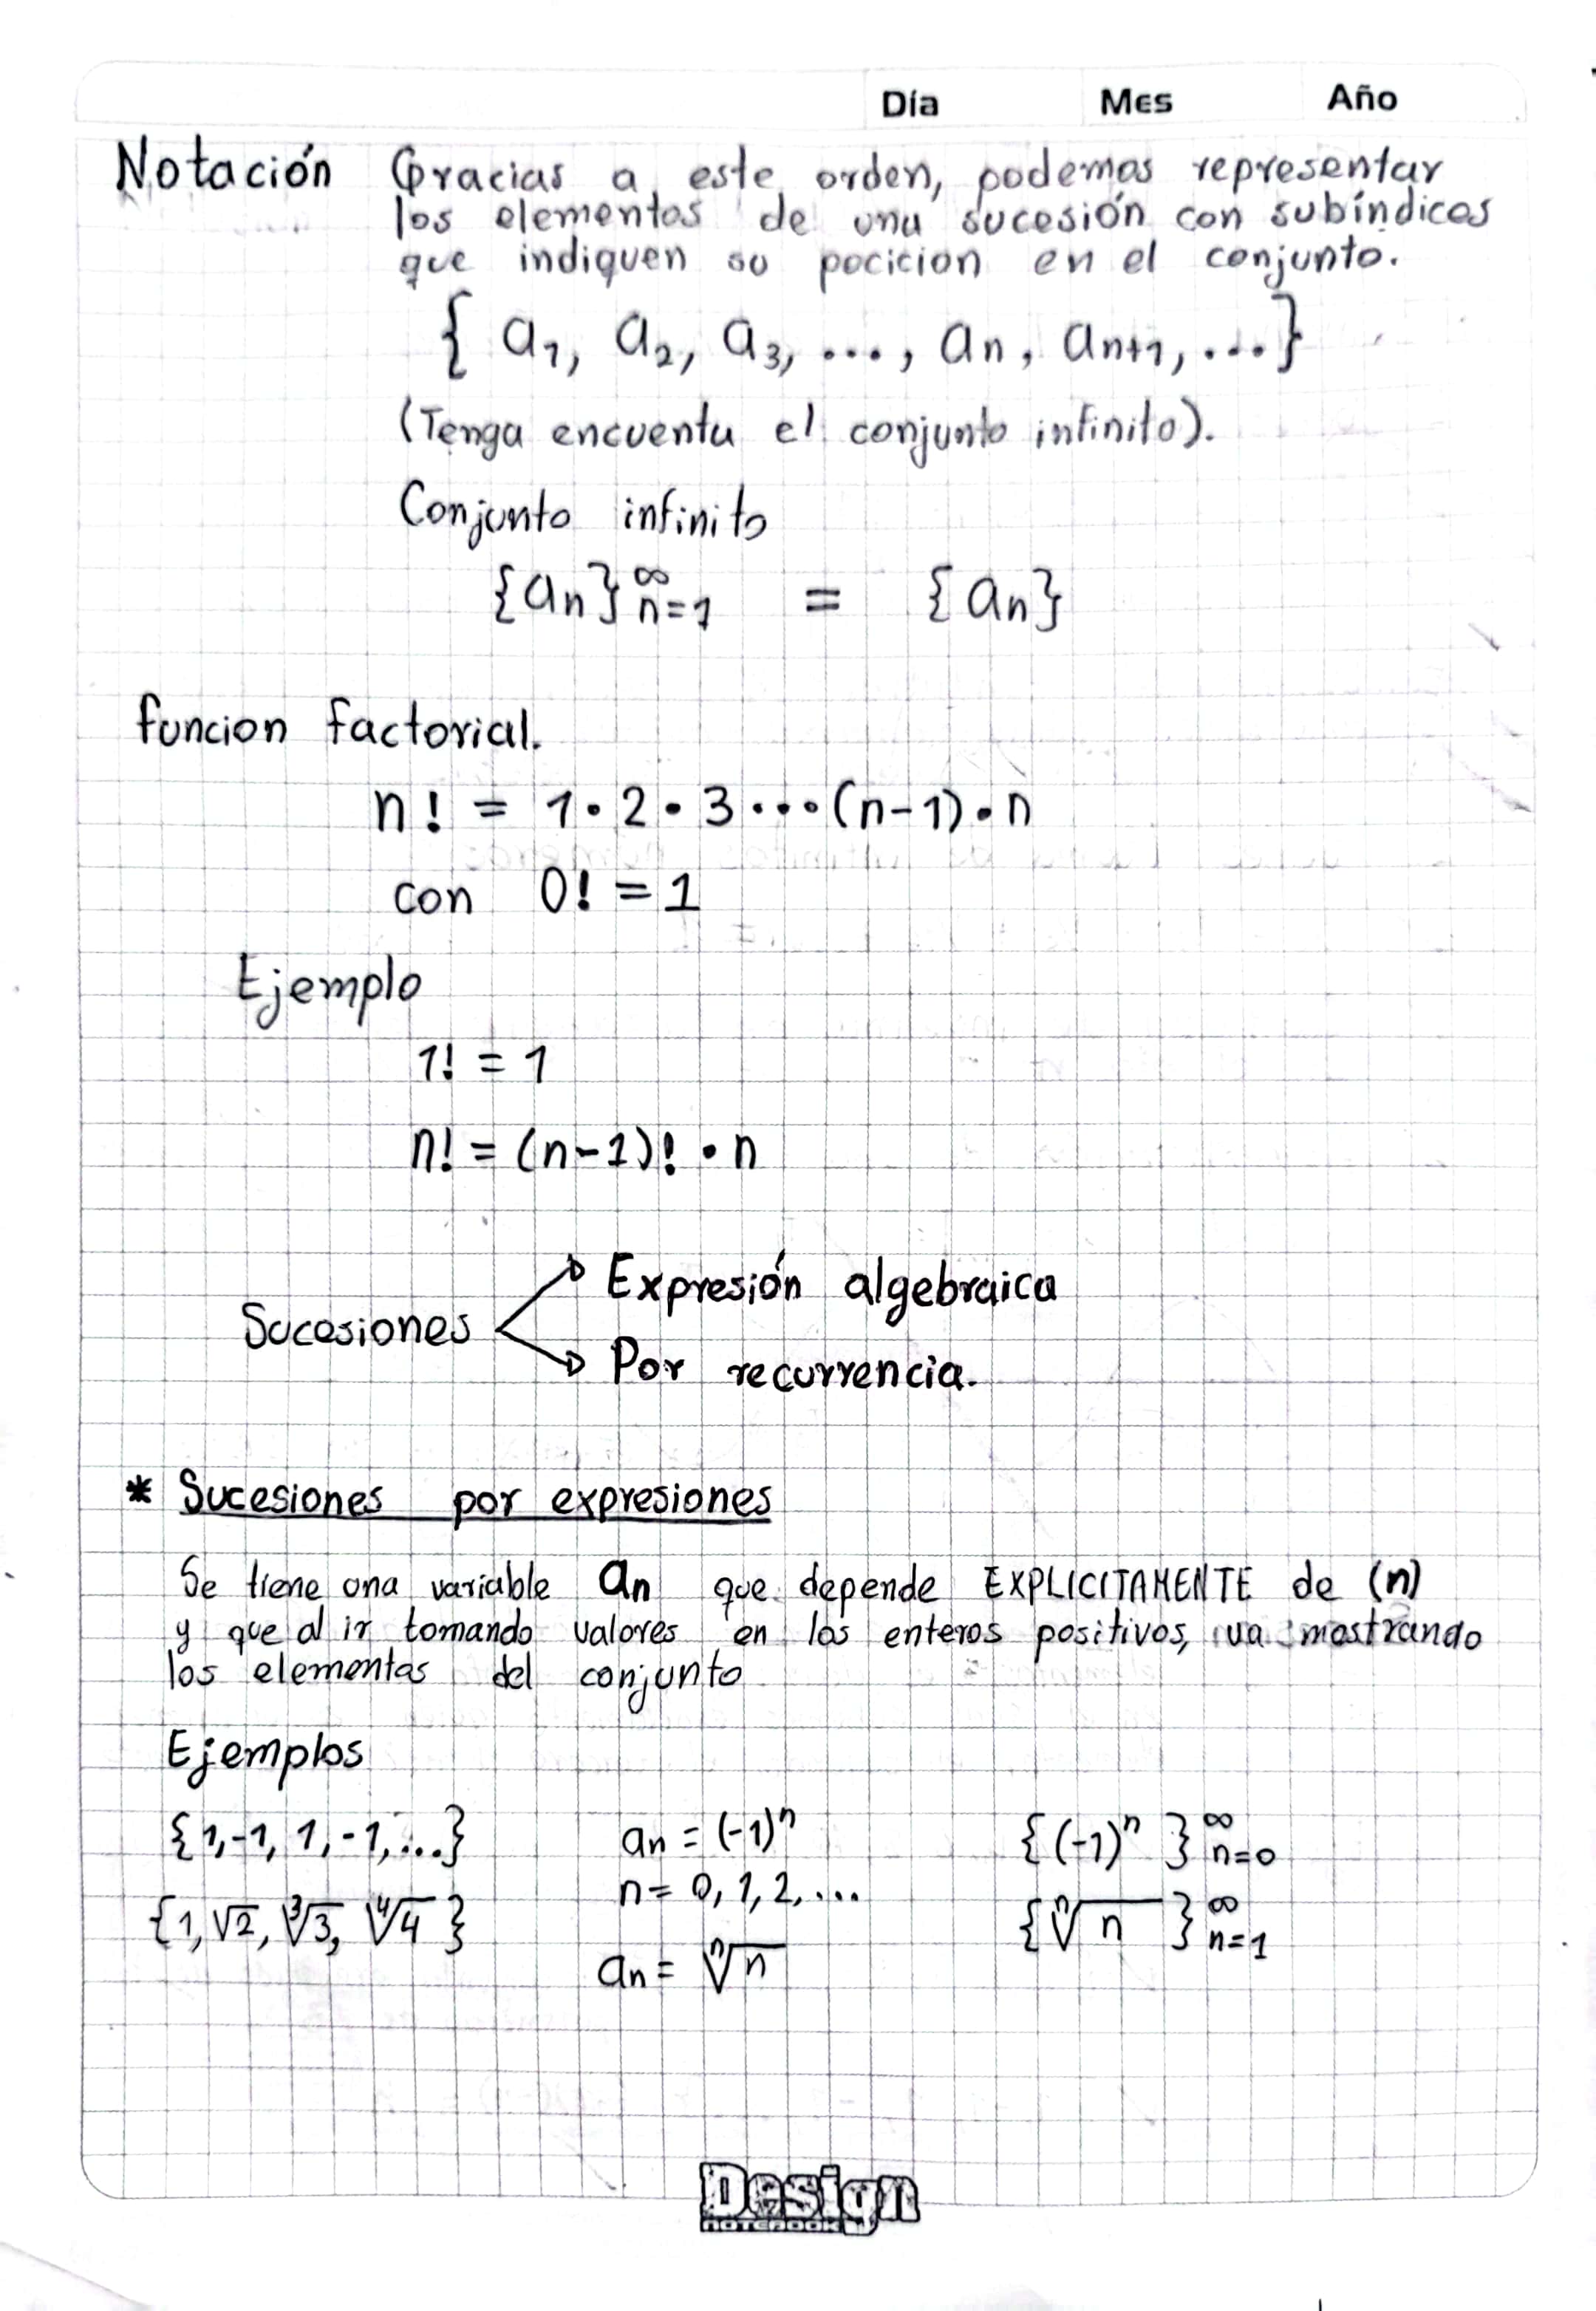 Día Mes Año
Notación Gracias a este orden, podemos representar
los elementos de una sucesión con subíndices
que indiquen su pocicion en el conjunto.
{ a₁, a₂, a₃, ..., aₙ, aₙ₊₁, ...}
(Tenga encuenta el conjunto infinito).
Conjunto infinito
{aₙ}^∞_{n=1} = {aₙ}
funcion factorial.
n! = 1·2·3···(n-1)·n
con 0! = 1
Ejemplo
1! = 1
n! = (n-1)! · n
Expresión algebraica
Sucesiones
Por recurrencia.
* Sucesiones por expresiones
Se tiene una variable aₙ que depende EXPLICITAMENTE de (n)
y que al ir tomando valores en los enteros positivos, va mostrando
los elementos del conjunto
Ejemplos
{1,-1, 1, -1,...} aₙ = (-1)ⁿ {(-1)ⁿ}^∞_{n=0}
n = 0, 1, 2, ...
{1, √2, ∛3, ∜4 } {ⁿ√n}^∞_{n=1}
aₙ = ⁿ√n
Design
NOTEBOOK